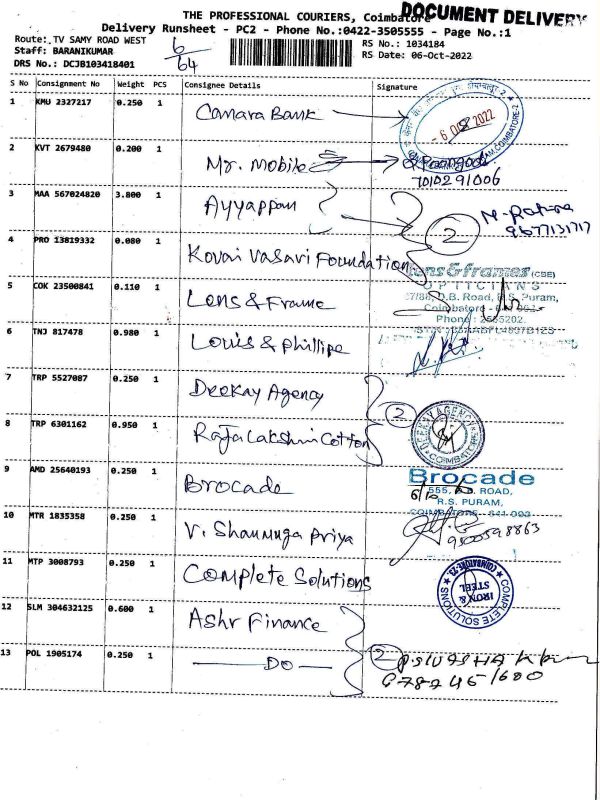 THE PROFESSIONAL COURIERS, Coimbatore
DOCUMENT DELIVERY
Delivery Runsheet - PC2 - Phone No.:0422-3505555 - Page No.:1
Route: TV SAMY ROAD WEST
Staff: BARANIKUMAR
DRS No.: DCJB103418401
6/64
RS No.: 1034184
RS Date: 06-Oct-2022
S No Consignment No Weight PCS Consignee Details Signature
1 KMU 2327217 0.250 1 Canara Bank
COIMBATORE-2
2 KVT 2679480 0.200 1 Mr. Mobile
7010291006
3 MAA 567024820 3.800 1 Ayyappan
2
9677131717
4 PRO 13819332 0.080 1 Kovai Vasavi Foundation
lens & frames (CBE)
OPTICIANS
D.B. Road, R.S. Puram,
Coimbatore - 641 002
5 COK 23500841 0.110 1 Lens & Frame
Phone : 2555202
6 TNJ 817478 0.980 1 Louis & phillipe
7 TRP 5527087 0.250 1 DeeKay Agency
2
DEEKAY AGENCY
COIMBATORE
8 TRP 6301162 0.950 1 RajaLakshmi Cotton
9 AMD 25640193 0.250 1 Brocade
Brocade
555, D.B. ROAD,
R.S. PURAM,
COIMBATORE - 641 002
10 MTR 1835358 0.250 1 V. Shanmuga Priya
9500598863
11 MTP 3008793 0.250 1 Complete Solutions
COMPLETE SOLUTIONS
IRON & STEEL
COIMBATORE
12 SLM 304632125 0.600 1 Ashr Finance
13 POL 1905174 0.250 1 DO
2